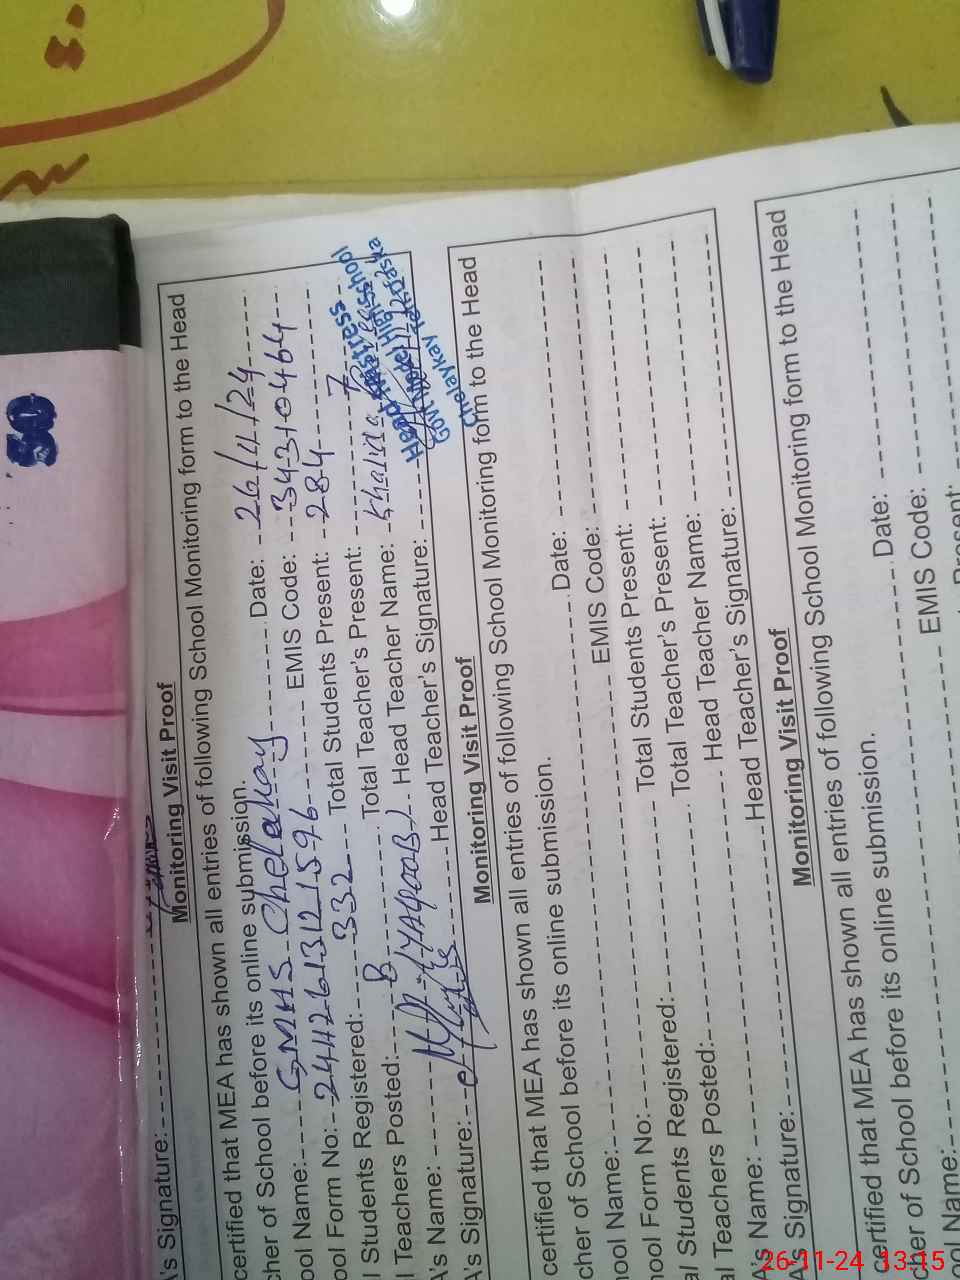 A's Signature:
Monitoring Visit Proof
certified that MEA has shown all entries of following School Monitoring form to the Head
cher of School before its online submission.
ool Name: GMHS Chelekay Date: 26/11/24
ool Form No: 24112613121596 EMIS Code: 34310464
l Students Registered: 332 Total Students Present: 284
l Teachers Posted: 8 Total Teacher's Present: 7
A's Name: M. YAQOOB Head Teacher Name: Khalida
A's Signature: Head Teacher's Signature:
Head Mistress
Govt Model High School
Chelaykay Teh Daska
Monitoring Visit Proof
certified that MEA has shown all entries of following School Monitoring form to the Head
cher of School before its online submission.
ool Name: Date:
ool Form No: EMIS Code:
al Students Registered: Total Students Present:
al Teachers Posted: Total Teacher's Present:
A's Name: Head Teacher Name:
A's Signature: Head Teacher's Signature:
Monitoring Visit Proof
certified that MEA has shown all entries of following School Monitoring form to the Head
cher of School before its online submission.
ool Name: Date:
EMIS Code:
Present:
50
26-11-24 13:15